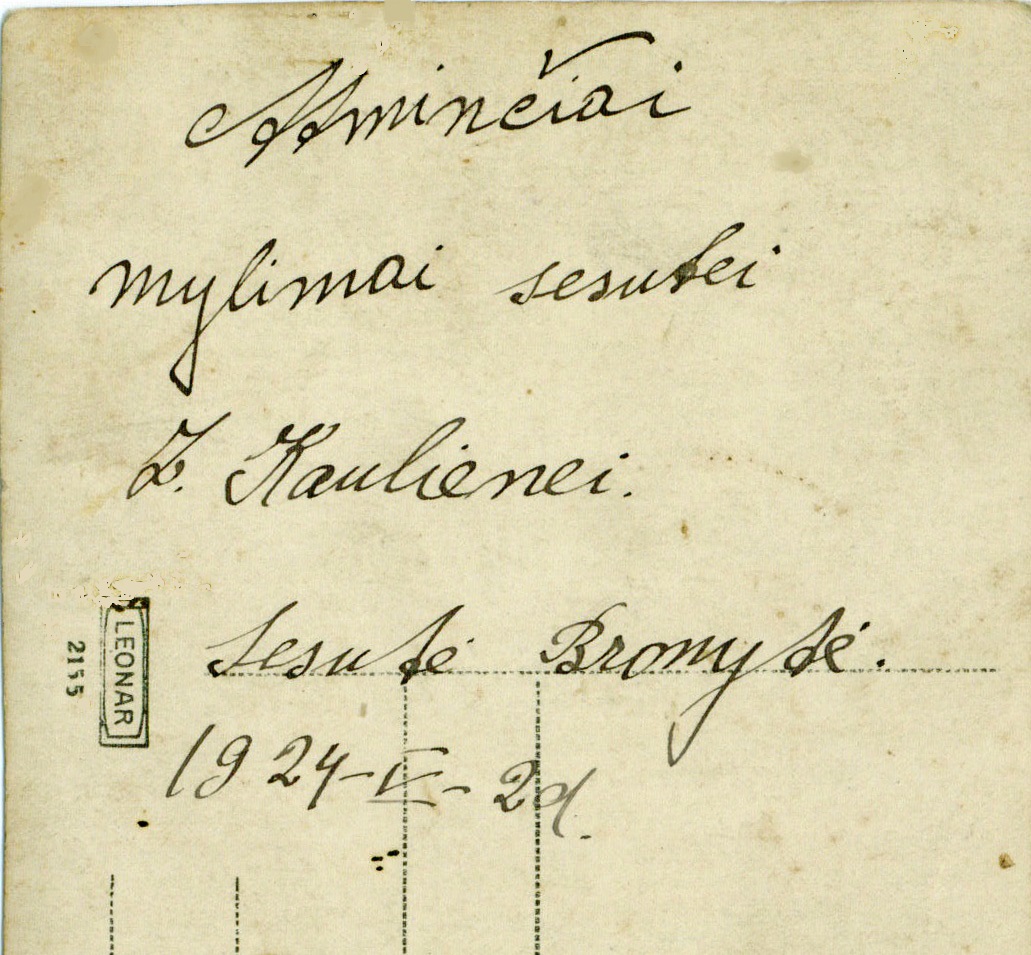 Atminčiai
mylimai sesutei
Z. Kaulienei.
Sesutė Bronytė.
1924-V-2d.
LEONAR
2155